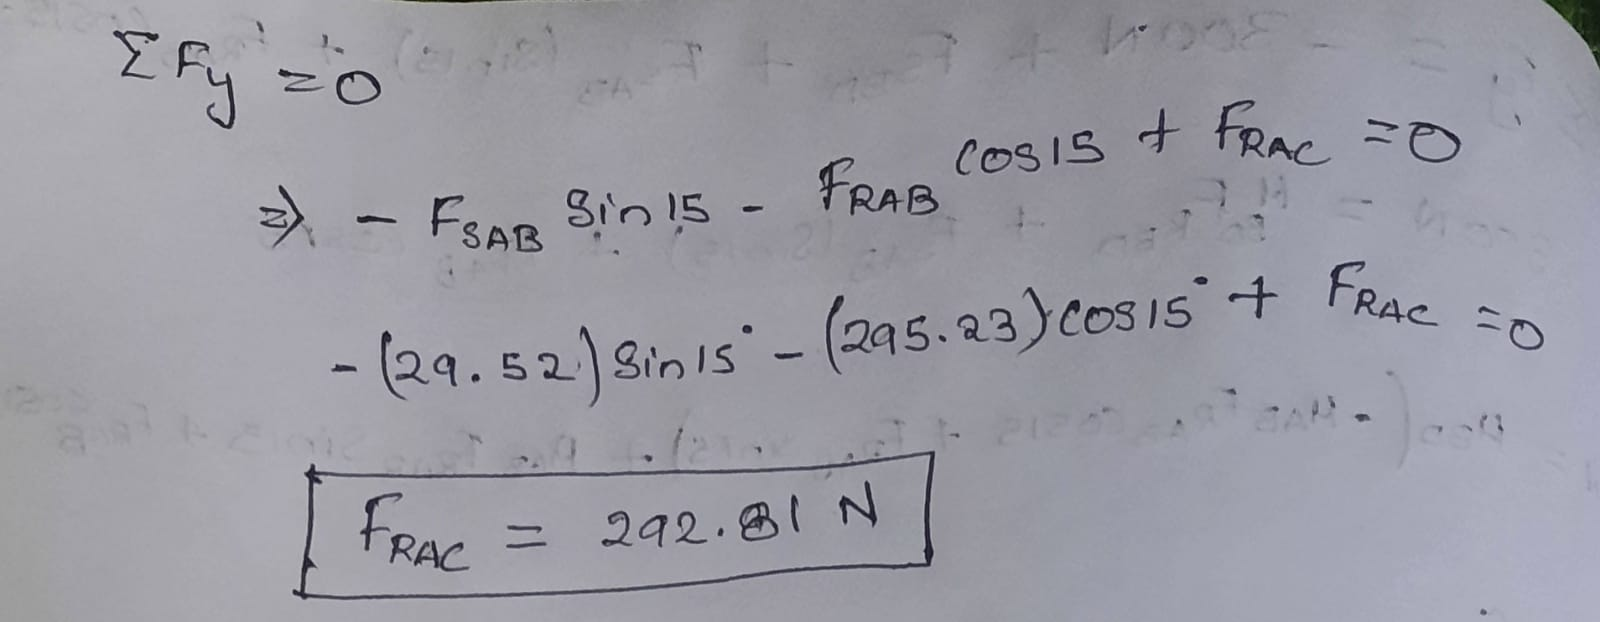 ΣFy = 0
⇒ - FSAB Sin 15 - FRAB COS 15 + FRAC = 0
- (29.52) Sin 15° - (295.23) COS 15° + FRAC = 0
FRAC = 292.81 N